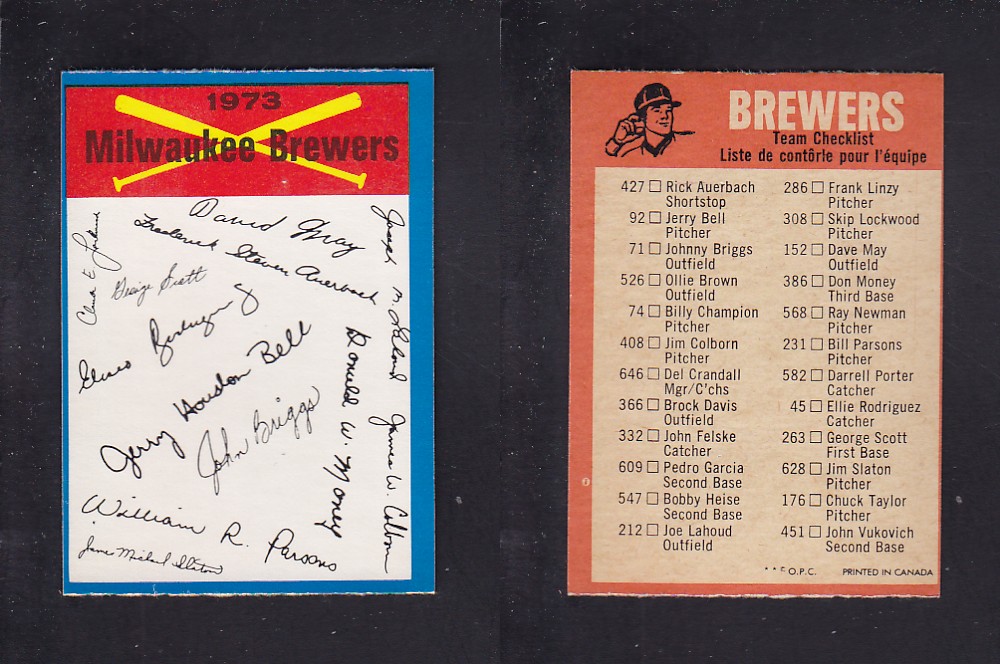 1973
Milwaukee Brewers
David Gray
Frederick Steven Auerbach
Joseph M. Lahoud
Chuck E. Lockwood
George Scott
Eliseo Rodriguez
Jerry Houston Bell
John Briggs
Donald W. Money
James W. Colborn
William R. Parsons
James Michael Slaton
BREWERS
Team Checklist
Liste de contôrle pour l'équipe
427 Rick Auerbach
Shortstop
92 Jerry Bell
Pitcher
71 Johnny Briggs
Outfield
526 Ollie Brown
Outfield
74 Billy Champion
Pitcher
408 Jim Colborn
Pitcher
646 Del Crandall
Mgr/C'chs
366 Brock Davis
Outfield
332 John Felske
Catcher
609 Pedro Garcia
Second Base
547 Bobby Heise
Second Base
212 Joe Lahoud
Outfield
286 Frank Linzy
Pitcher
308 Skip Lockwood
Pitcher
152 Dave May
Outfield
386 Don Money
Third Base
568 Ray Newman
Pitcher
231 Bill Parsons
Pitcher
582 Darrell Porter
Catcher
45 Ellie Rodriguez
Catcher
263 George Scott
First Base
628 Jim Slaton
Pitcher
176 Chuck Taylor
Pitcher
451 John Vukovich
Second Base
O.P.C. PRINTED IN CANADA